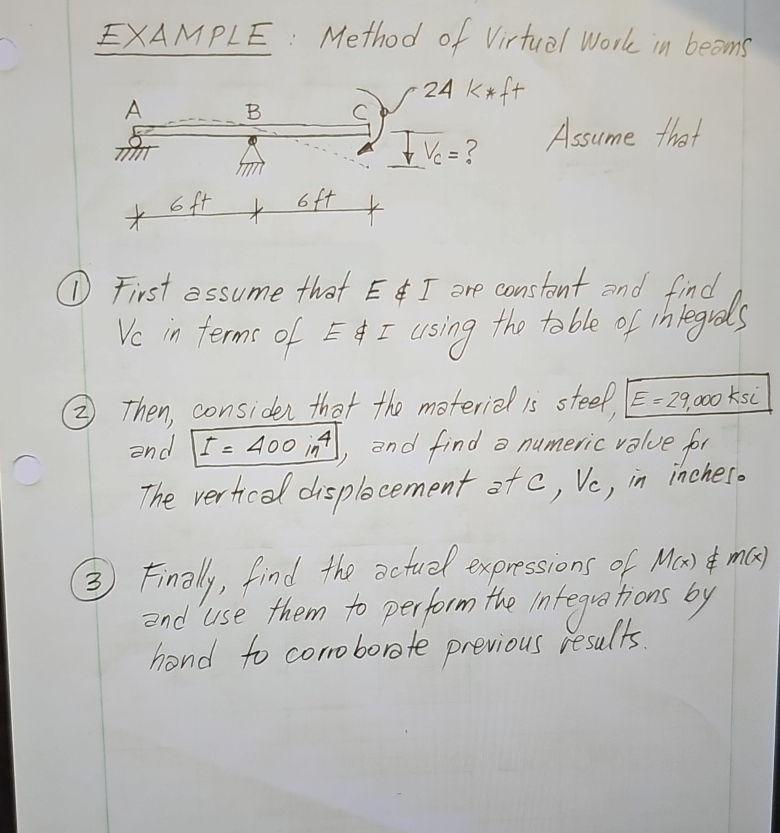 EXAMPLE : Method of Virtual Work in beams
24 k*ft
A B C
Vc = ? Assume that
6 ft 6 ft
① First assume that E & I are constant and find
Vc in terms of E & I using the table of integrals
② Then, consider that the material is steel, E = 29,000 ksi
and I = 400 in⁴, and find a numeric value for
The vertical displacement at C, Vc, in inches.
③ Finally, find the actual expressions of M(x) & m(x)
and use them to perform the integrations by
hand to corroborate previous results.